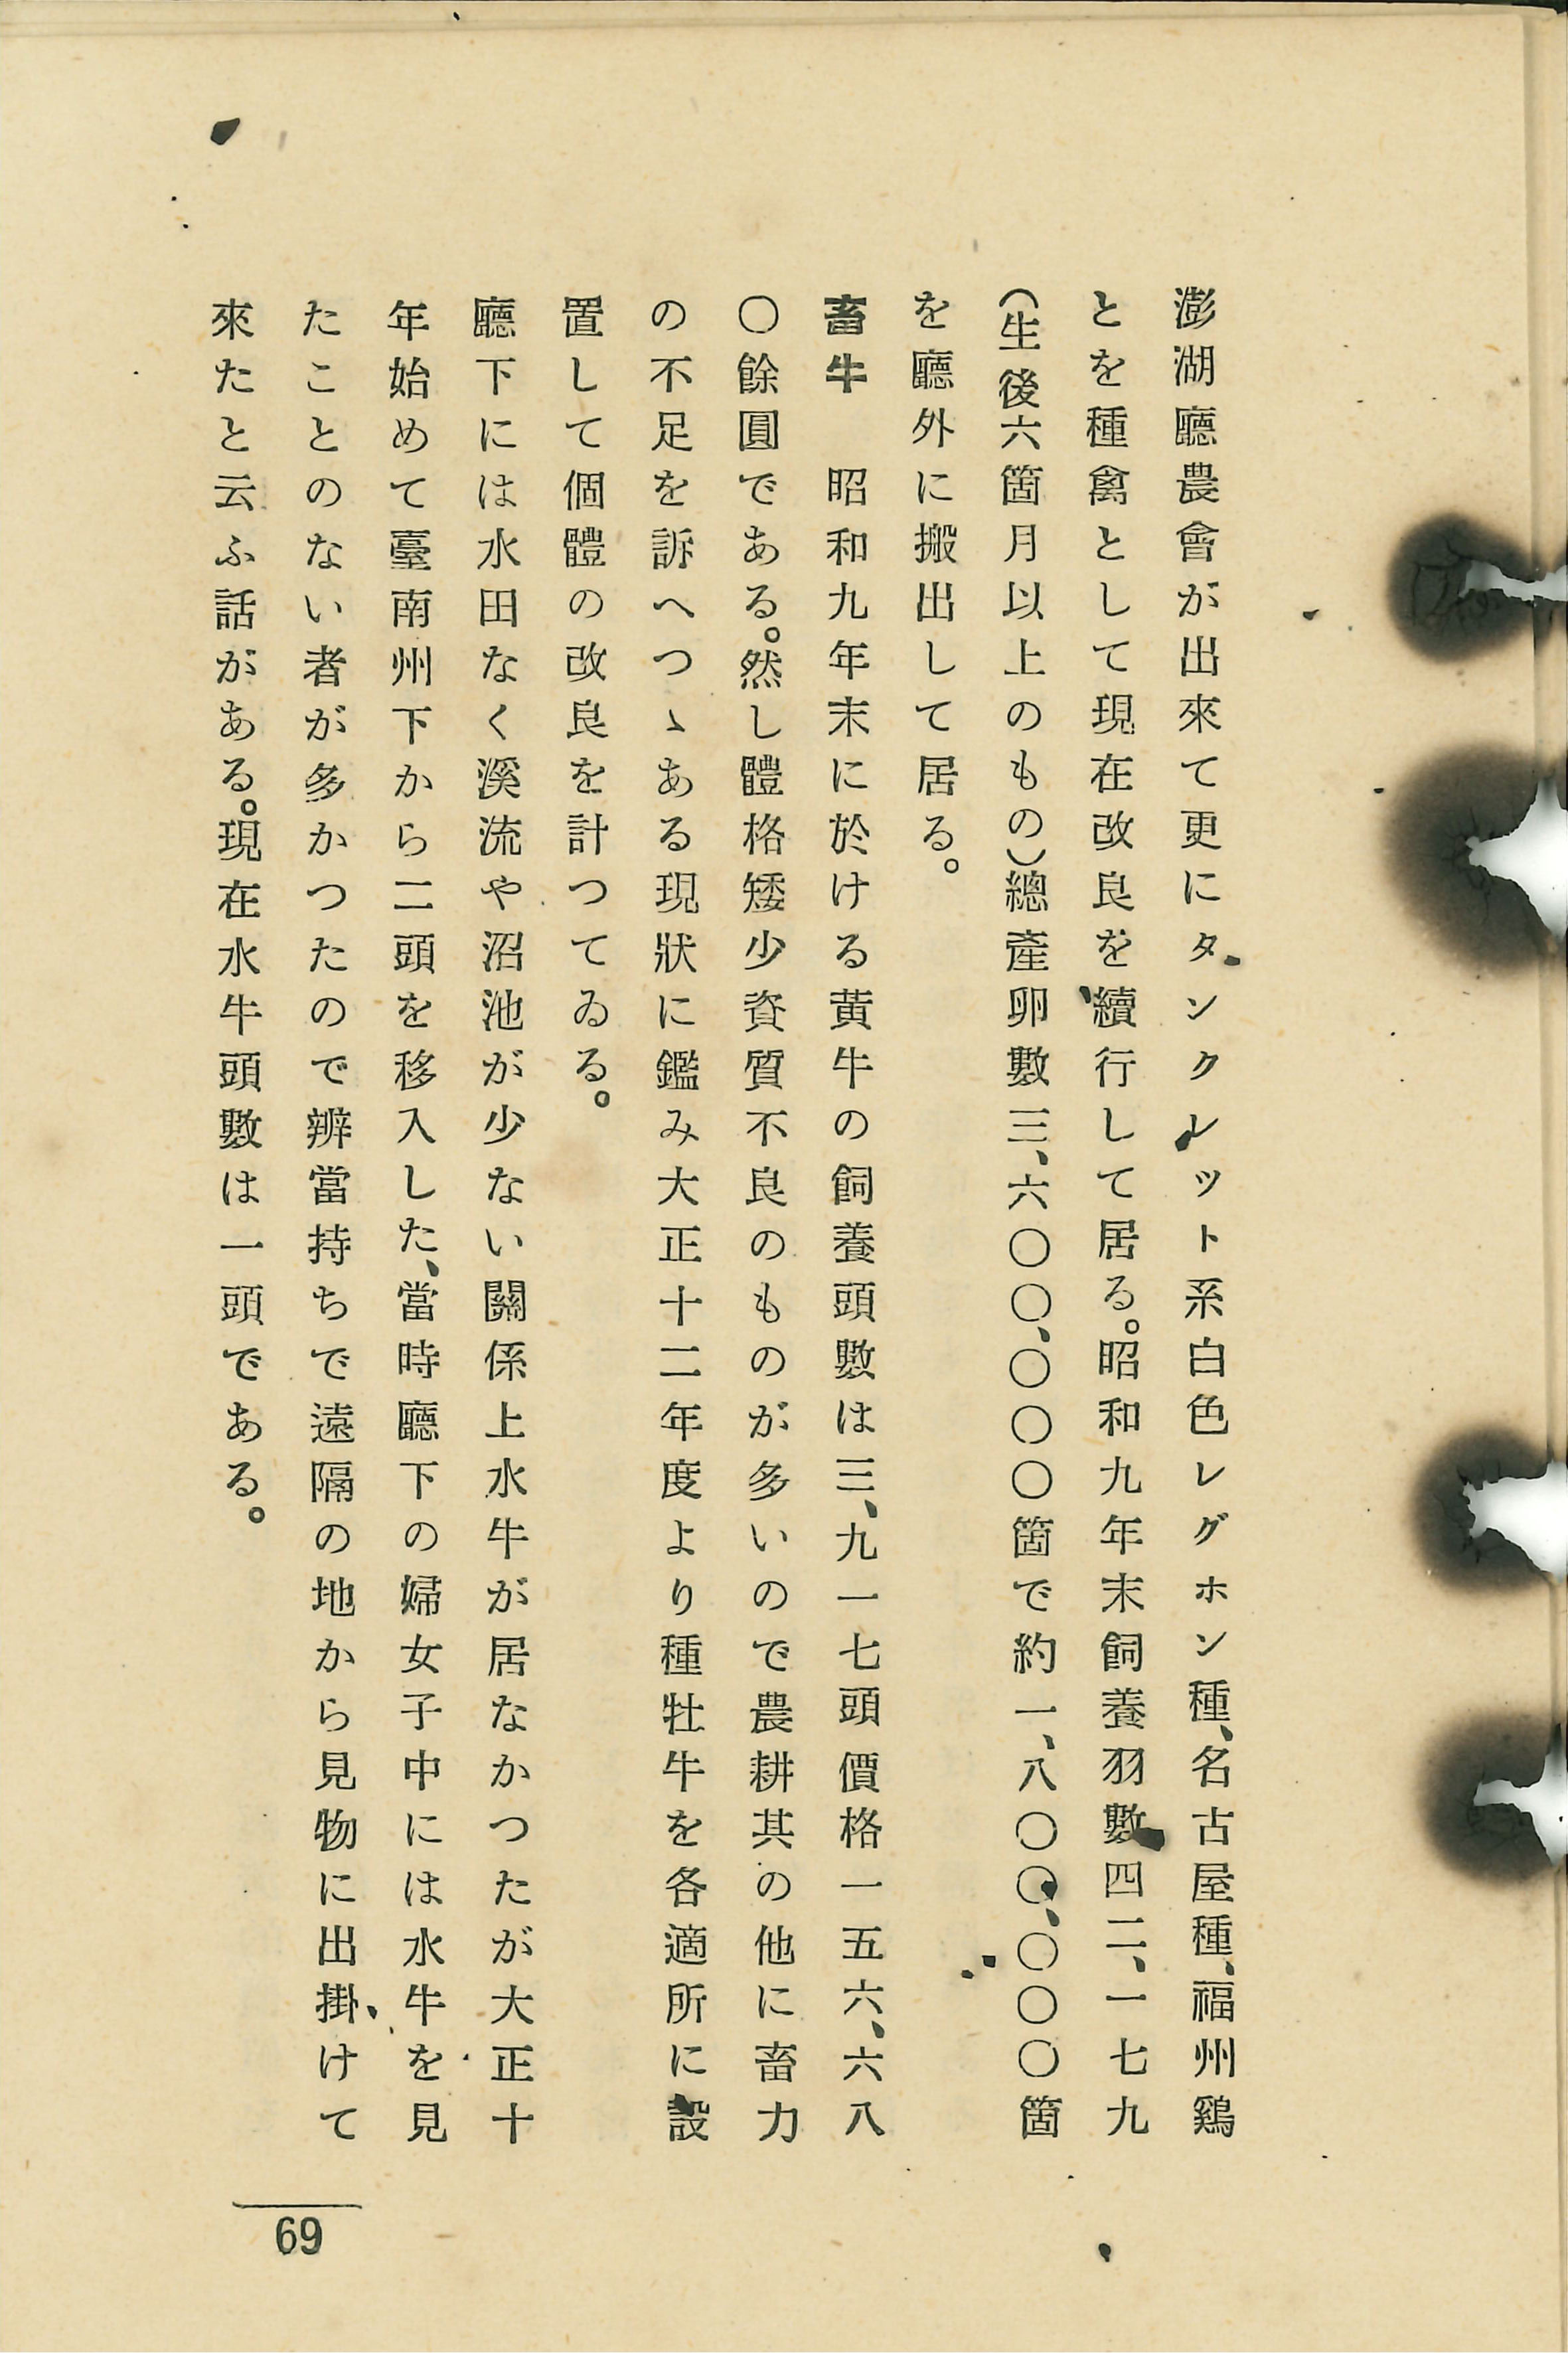 澎湖廳農會が出來て更にタンクレット系白色レグホン種、名古屋種、福州鷄
とを種禽として現在改良を續行して居る。昭和九年末飼養羽數四二、一七九
（生後六箇月以上のもの）總產卵數三、六〇〇、〇〇〇箇で約一、八〇〇、〇〇〇箇
を廳外に搬出して居る。
畜牛　昭和九年末に於ける黃牛の飼養頭數は三、九一七頭價格一五六、六八
〇餘圓である。然し體格矮少資質不良のものが多いので農耕其の他に畜力
の不足を訴へつゝある現狀に鑑み大正十二年度より種牡牛を各適所に設
置して個體の改良を計つてゐる。
廳下には水田なく溪流や沼池が少ない關係上水牛が居なかつたが大正十
年始めて臺南州下から二頭を移入した、當時廳下の婦女子中には水牛を見
たことのない者が多かつたので辨當持ちで遠隔の地から見物に出掛けて
來たと云ふ話がある。現在水牛頭數は一頭である。
69